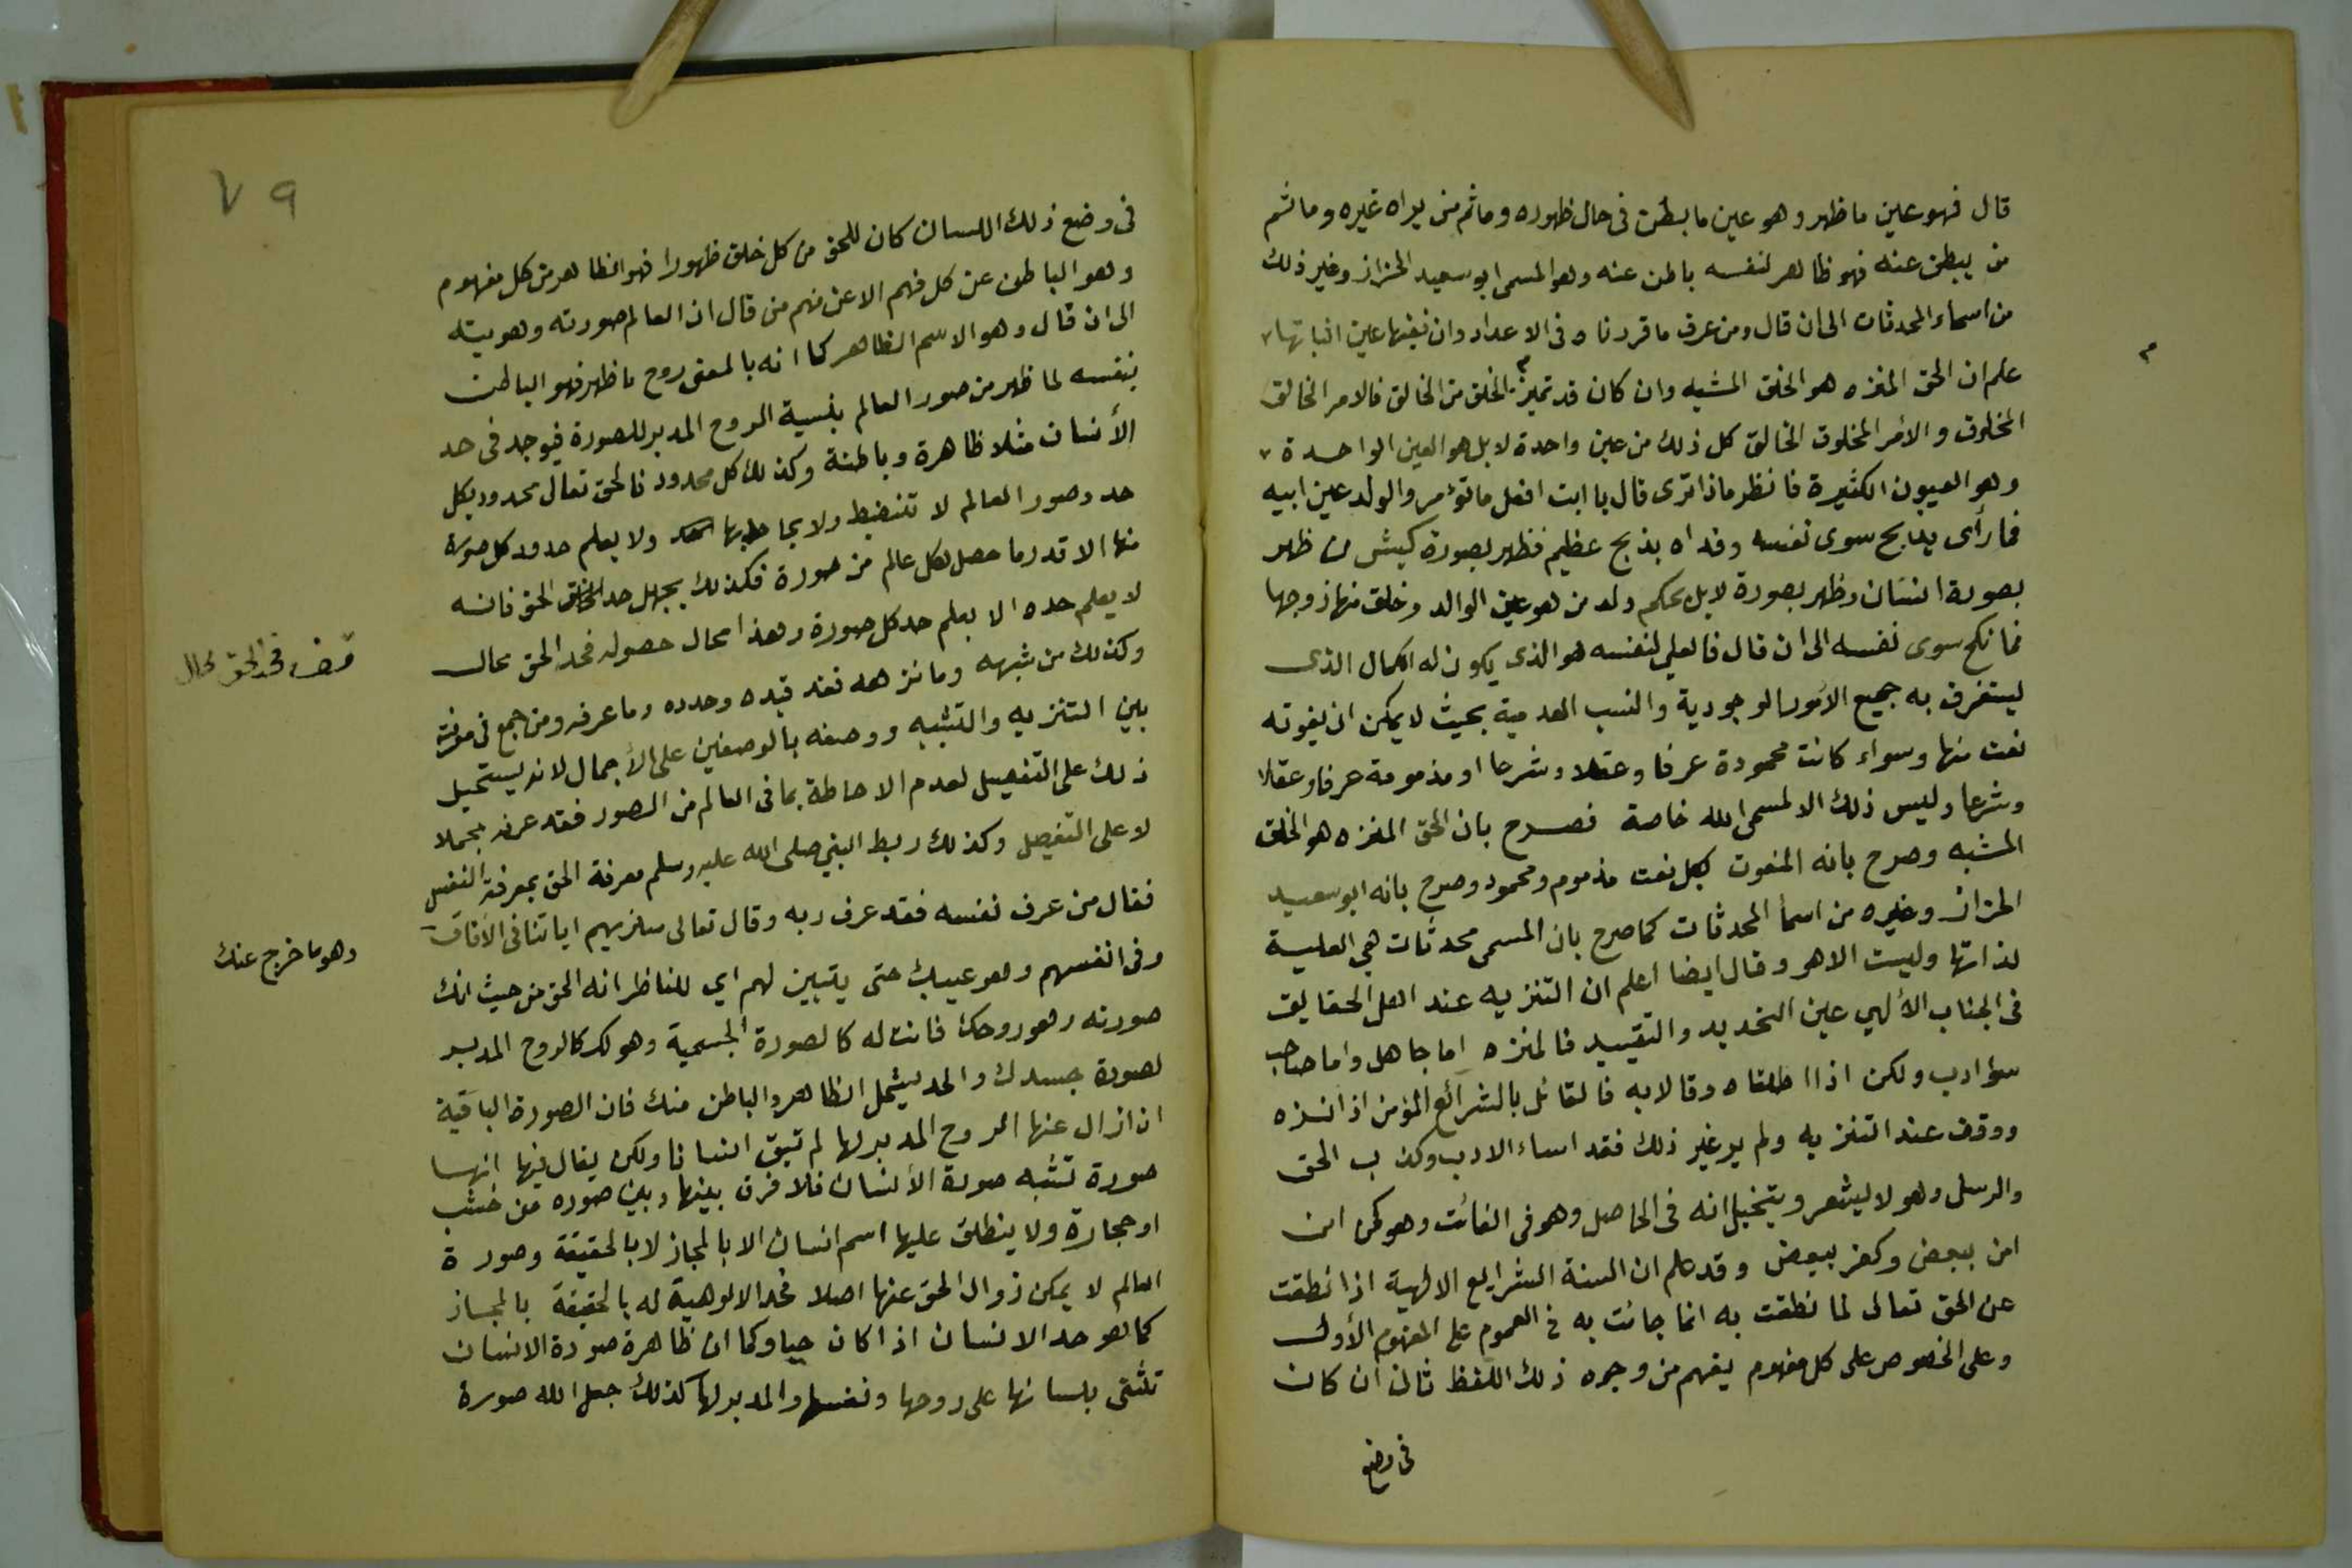 قال فهو عين ما ظهر وهو عين ما بطن في حال ظهوره وما ثم من يراه غيره وما ثم
من يبطن عنه فهو ظاهر لنفسه باطن عنه وهو المسمى ابو سعيد الخراز وغير ذلك
من اسماء المحدثات الى ان قال ومن عرف ما قررناه في الاعداد وان نفيها عين اثباتها
علم ان الحق المنزه هو الخلق المشبه وان كان قد تميز الخلق من الخالق فالامر الخالق
المخلوق والأمر المخلوق الخالق كل ذلك من عين واحدة لا بل هو العين الواحدة
وهو العيون الكثيرة فانظر ماذا ترى قال يا ابت افعل ما تؤمر والولد عين ابيه
فما رأى يذبح سوى نفسه وفداه بذبح عظيم فظهر بصورة كبش من ظهر
بصورة انسان وظهر بصورة لا بل بحكم ولد من هو عين الوالد وخلق منها زوجها
فما نكح سوى نفسه الى ان قال فالعلي لنفسه هو الذي يكون له الكمال الذى
ليستغرق به جميع الأمور الوجودية والنسب العدمية بحيث لا يمكن ان يفوته
نعت منها وسواء كانت محمودة عرفا وعقلا وشرعا او مذمومة عرفا وعقلا
وشرعا وليس ذلك الا لمسمى الله خاصة فصرح بان الحق المنزه هو الخلق
المشبه وصرح بانه المنعوت بكل نعت مذموم ومحمود وصرح بانه ابو سعيد
الخراز وغيره من اسما المحدثات كما صرح بان المسمى محدثات هي العلية
لذاتها وليست الا هو وقال ايضا اعلم ان التنزيه عند اهل الحقايق
في الجناب الألهي عين التحديد والتقييد فالمنزه اما جاهل واما صاحب
سؤ ادب ولكن اذا اطلقاه وقالا به فالقائل بالشرائع المؤمن اذا نزه
ووقف عند التنزيه ولم ير غير ذلك فقد اساء الادب وكذب الحق
والرسل وهو لا يشعر ويتخيل انه في الحاصل وهو في الفائت وهو كمن امن
امن ببعض وكفر ببعض وقد علم ان السنة الشرايع الالهية اذا نطقت
عن الحق تعالى لما نطقت به انما جائت به في العموم على المفهوم الأول
وعلى الخصوص على كل مفهوم يفهم من وجوه ذلك اللفظ ثان ان كان
في وضع
م
٧٩
في وضع ذلك اللسان كان للحق من كل خلق ظهورا فهو الظاهر من كل مفهوم
وهو الباطن عن كل فهم الا عن فهم من قال ان العالم صورته وهويته
الى ان قال وهو الاسم الظاهر كما انه بالمعنى روح ما ظهر فهو الباطن
بنفسه لما ظهر من صور العالم بنسبة الروح المدبر للصورة فيوجد في حد
الأنسان مثلا ظاهرة وباطنة وكذلك كل محدود فالحق تعالى محدود بكل
حد وصور العالم لا تنضبط ولا يحاط بها ولا يعلم حدود كل صورة
منها الا قدر ما حصل لكل عالم من صورة فكذلك يجهل حد الحق فانه
لا يعلم حده الا بعلم حد كل صورة وهذا محال حصوله فحد الحق محال
وكذلك من شبهه وما نزهه فقد قيده وحدده وما عرفه ومن جمع في معرفته
بين التنزيه والتشبيه ووصفه بالوصفين على الأجمال لانه يستحيل
ذلك على التفصيل لعدم الاحاطة بما في العالم من الصور فقد عرفه مجملا
لا على التفصيل وكذلك ربط النبي صلى الله عليه وسلم معرفة الحق بمعرفة النفس
فقال من عرف نفسه فقد عرف ربه وقال تعالى سنريهم اياتنا في الأفاق
وفي انفسهم وهو عينك حتى يتبين لهم اي للناظر انه الحق من حيث انك
صورته وهو روحك فانت له كالصورة الجسمية وهو لك كالروح المدبر
لصورة جسدك والحد يشمل الظاهر والباطن منك فان الصورة الباقية
ان ازال عنها الروح المدبر لها لم تبق انسانا ولكن يقال فيها انها
صورة تشبه صورة الأنسان فلا فرق بينها وبين صوره من خشب
او حجارة ولا ينطلق عليها اسم انسان الا بالمجاز لا بالحقيقة وصورة
العالم لا يمكن زوال الحق عنها اصلا فحد الالوهية له بالحقيقة بالمجاز
كما هو حد الانسان اذا كان حيا وكما ان ظاهرة صورة الانسان
تثنى بلسانها على روحها ونفسها والمدبر لها كذلك جعل الله صورة
فحد الحق محال
وهو ما خرج عنك